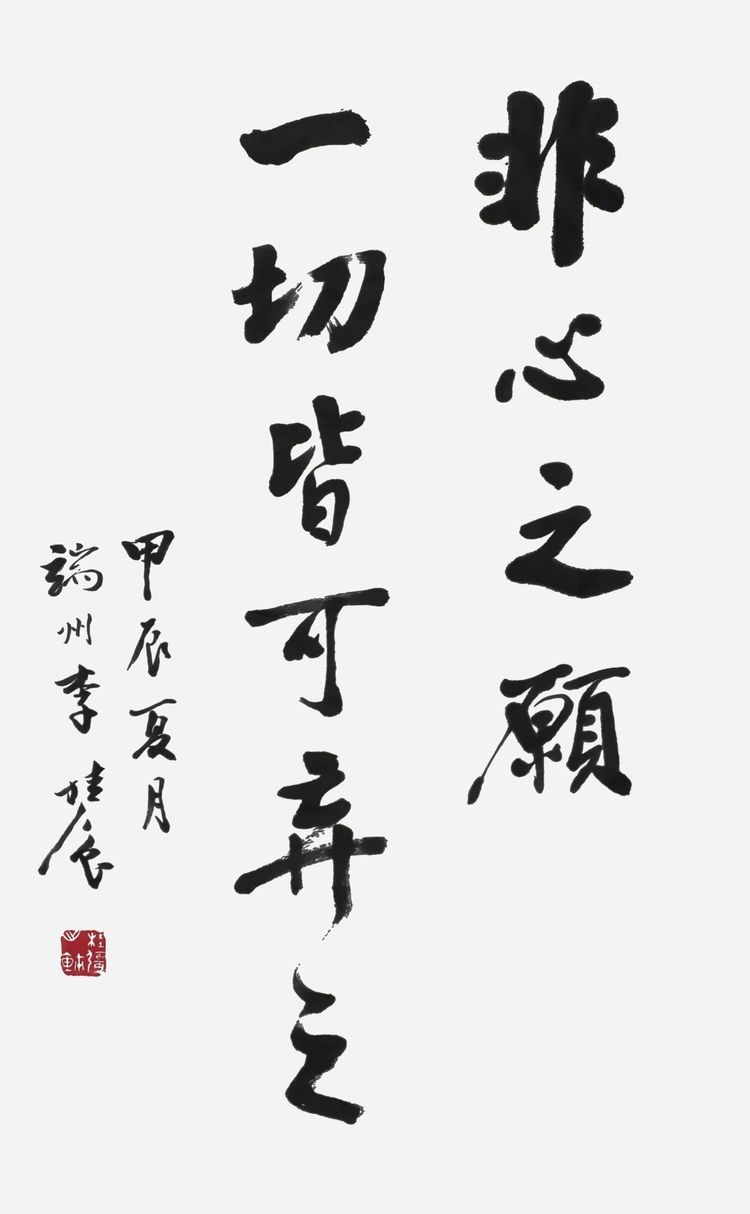 非心之願
一切皆可弃之
甲辰夏月
端州李桂